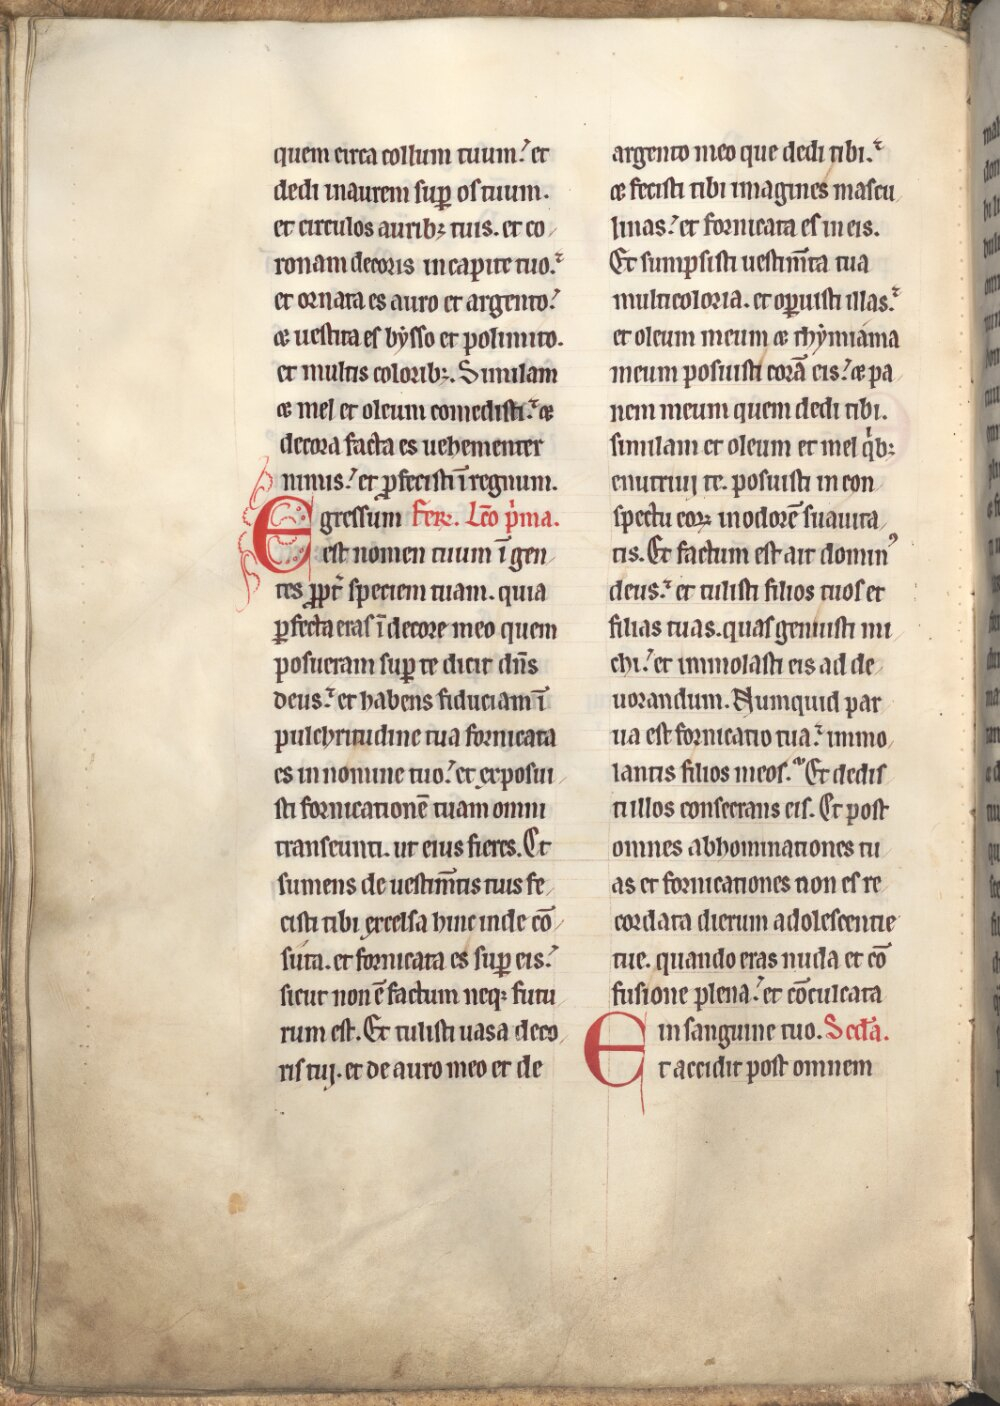 quem circa collum tuum. et
dedi inaurem suꝑ os tuum.
et circulos auribꝫ tuis. et co
ronam decoris in capite tuo.
et ornata es auro et argento.
⁊ uestita es bysso et polimito.
et multis coloribꝫ. Similam
⁊ mel et oleum comedisti. ⁊
decora facta es uehementer
nimis. et ꝑfecisti ī regnum.
Egressum Fer. Lc̄o p̄ma.
est nomen tuum ī gen
tes ꝓpt̄ speciem tuam. quia
ꝑfecta eras ī decore meo quem
posueram suꝑ te dicit dn̄s
deus. et habens fiduciam ī
pulchritudine tua fornicata
es in nomine tuo. et exposui
sti fornicationē tuam omni
transeunti. ut eius fieres. Et
sumens de uestim̄tis tuis fe
cisti tibi excelsa hinc inde cō
suta. et fornicata es suꝑ eis.
sicut non ē factum neqꝫ futu
rum est. Et tulisti uasa deco
ris tuj. et de auro meo et de
argento meo que dedi tibi.
⁊ fecisti tibi imagines mascu
linas. et fornicata es in eis.
Et sumpsisti uestim̄ta tua
multicoloria. et oꝑuisti illas.
et oleum meum ⁊ thymiama
meum posuisti corā eis. ⁊ pa
nem meum quem dedi tibi.
similam et oleum et mel qͥbꝫ
enutriuj te. posuisti in con
spectu eoꝝ in odorē suauita
tis. Et factum est ait dominꝰ
deus. et tulisti filios tuos et
filias tuas. quas genuisti mi
chi. et immolasti eis ad de
uorandum. Numquid par
ua est fornicatio tua. immo
lantis filios meos. Et dedis
ti illos consecrans eis. Et post
omnes abhominationes tu
as et fornicationes non es re
cordata dierum adolescentie
tue. quando eras nuda et cō
fusione plena. et cōculcata
in sanguine tuo. Sec̄da.
Et accidit post omnem